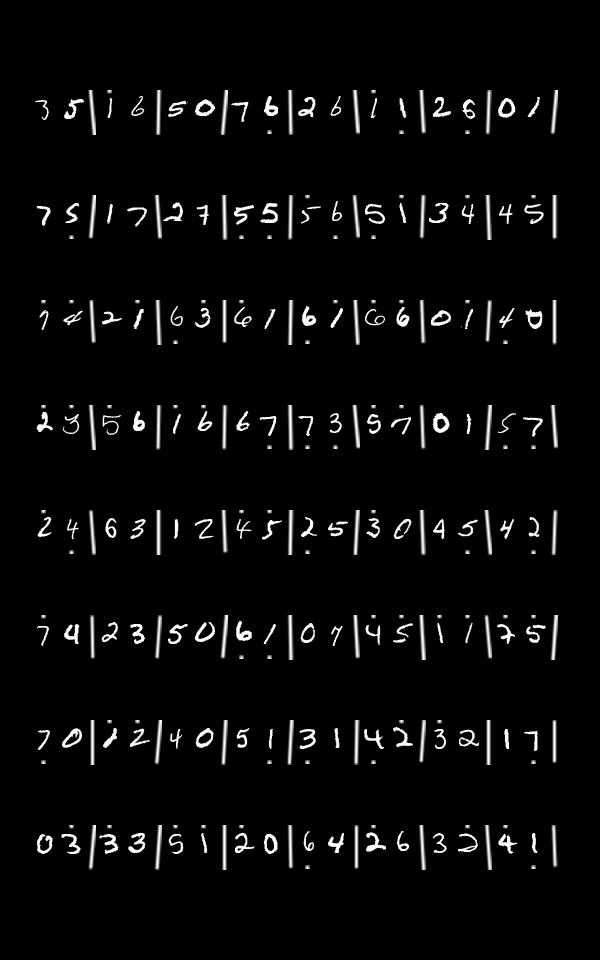 3 5 | 1̇ 6 | 5 0 | 7 6̣ | 2 6 | 1̇ 1̣ | 2 6̣ | 0 1 |
7 5̣ | 1 7 | 2 7 | 5̣ 5̣ | 5̇ 6̣ | 5̣ 1̇ | 3 4̇ | 4 5̇ |
7̇ 4̇ | 2 1̇ | 6̣ 3̇ | 6 1 | 6 1̇ | 6 6̇ | 0 1̇ | 4̣ 0 |
2̇ 3̇ | 5̇ 6 | 1̇ 6̇ | 6 7̣ | 7̣ 3̣ | 5̇ 7̇ | 0 1 | 5̣ 7̣ |
2̇ 4̣ | 6 3 | 1 2 | 4̇ 5̇ | 2̣ 5 | 3̇ 0 | 4 5̣ | 4 2̣ |
7̇ 4 | 2 3 | 5 0 | 6̣ 1̣ | 0 7 | 4̇ 5̇ | 1̇ 1̇ | 7̇ 5̇ |
7̣ 0 | 1̇ 2̇ | 4 0 | 5 1̣ | 3̣ 1 | 4̣ 2̇ | 3̇ 2 | 1 7̣ |
0 3̇ | 3̇ 3 | 5̇ 1̇ | 2̇ 0 | 6̣ 4 | 2̇ 6 | 3 2̇ | 4̇ 1̣ |